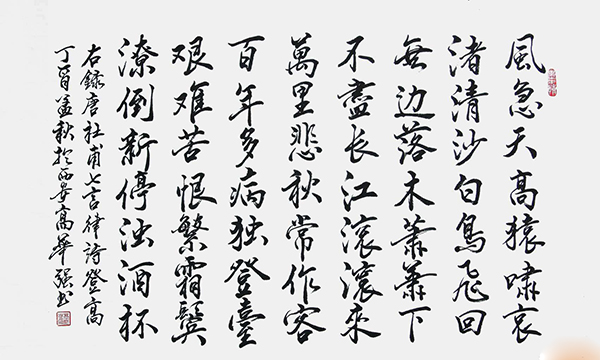 風急天高猿嘯哀
渚清沙白鳥飛回
無边落木蕭蕭下
不盡长江滾滾來
萬里悲秋常作客
百年多病独登臺
艰难苦恨繁霜鬓
潦倒新停浊酒杯
右錄唐杜甫七言律詩登高
丁酉孟秋於西安高華强书